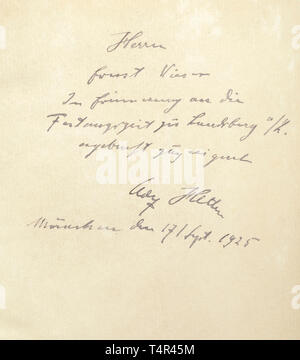 Herrn
Ernst Vieser
In Erinnerung an die
Festungszeit zu Landsberg a/L.
ergebenst zugeeignet
Adolf Hitler
München den 17/Sept. 1925
alamy
Image ID: T4R45M
www.alamy.com